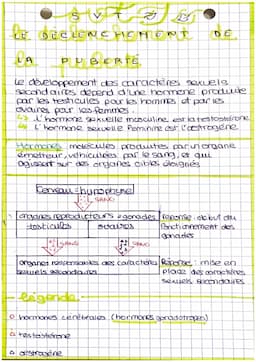 SVT
LE DÉCLENCHEMENT DE
LA PUBERTÉ
Le développement des caractères sexuels
secondaires dépend d'une hormone produite
par les testicules pour les hommes et par les
ovaires pour les femmes.
↳ L'hormone sexuelle masculine est la testostérone
↳ L'hormone sexuelle féminine est l'œstrogène
Hormones : molécules produites par un organe
émetteur, véhiculées par le sang, et qui
agissent sur des organes cibles éloignés
Cerveau = hypophyse
SANG
organes reproducteurs = gonades
testicules ovaires
Réponse : début du
fonctionnement des
gonades
SANG SANG
organes responsables des caractères
sexuels secondaires
Réponse : mise en
place des caractères
sexuels secondaires
- légende -
hormones cérébrales (hormones gonadotropes)
testostérone
œstrogène